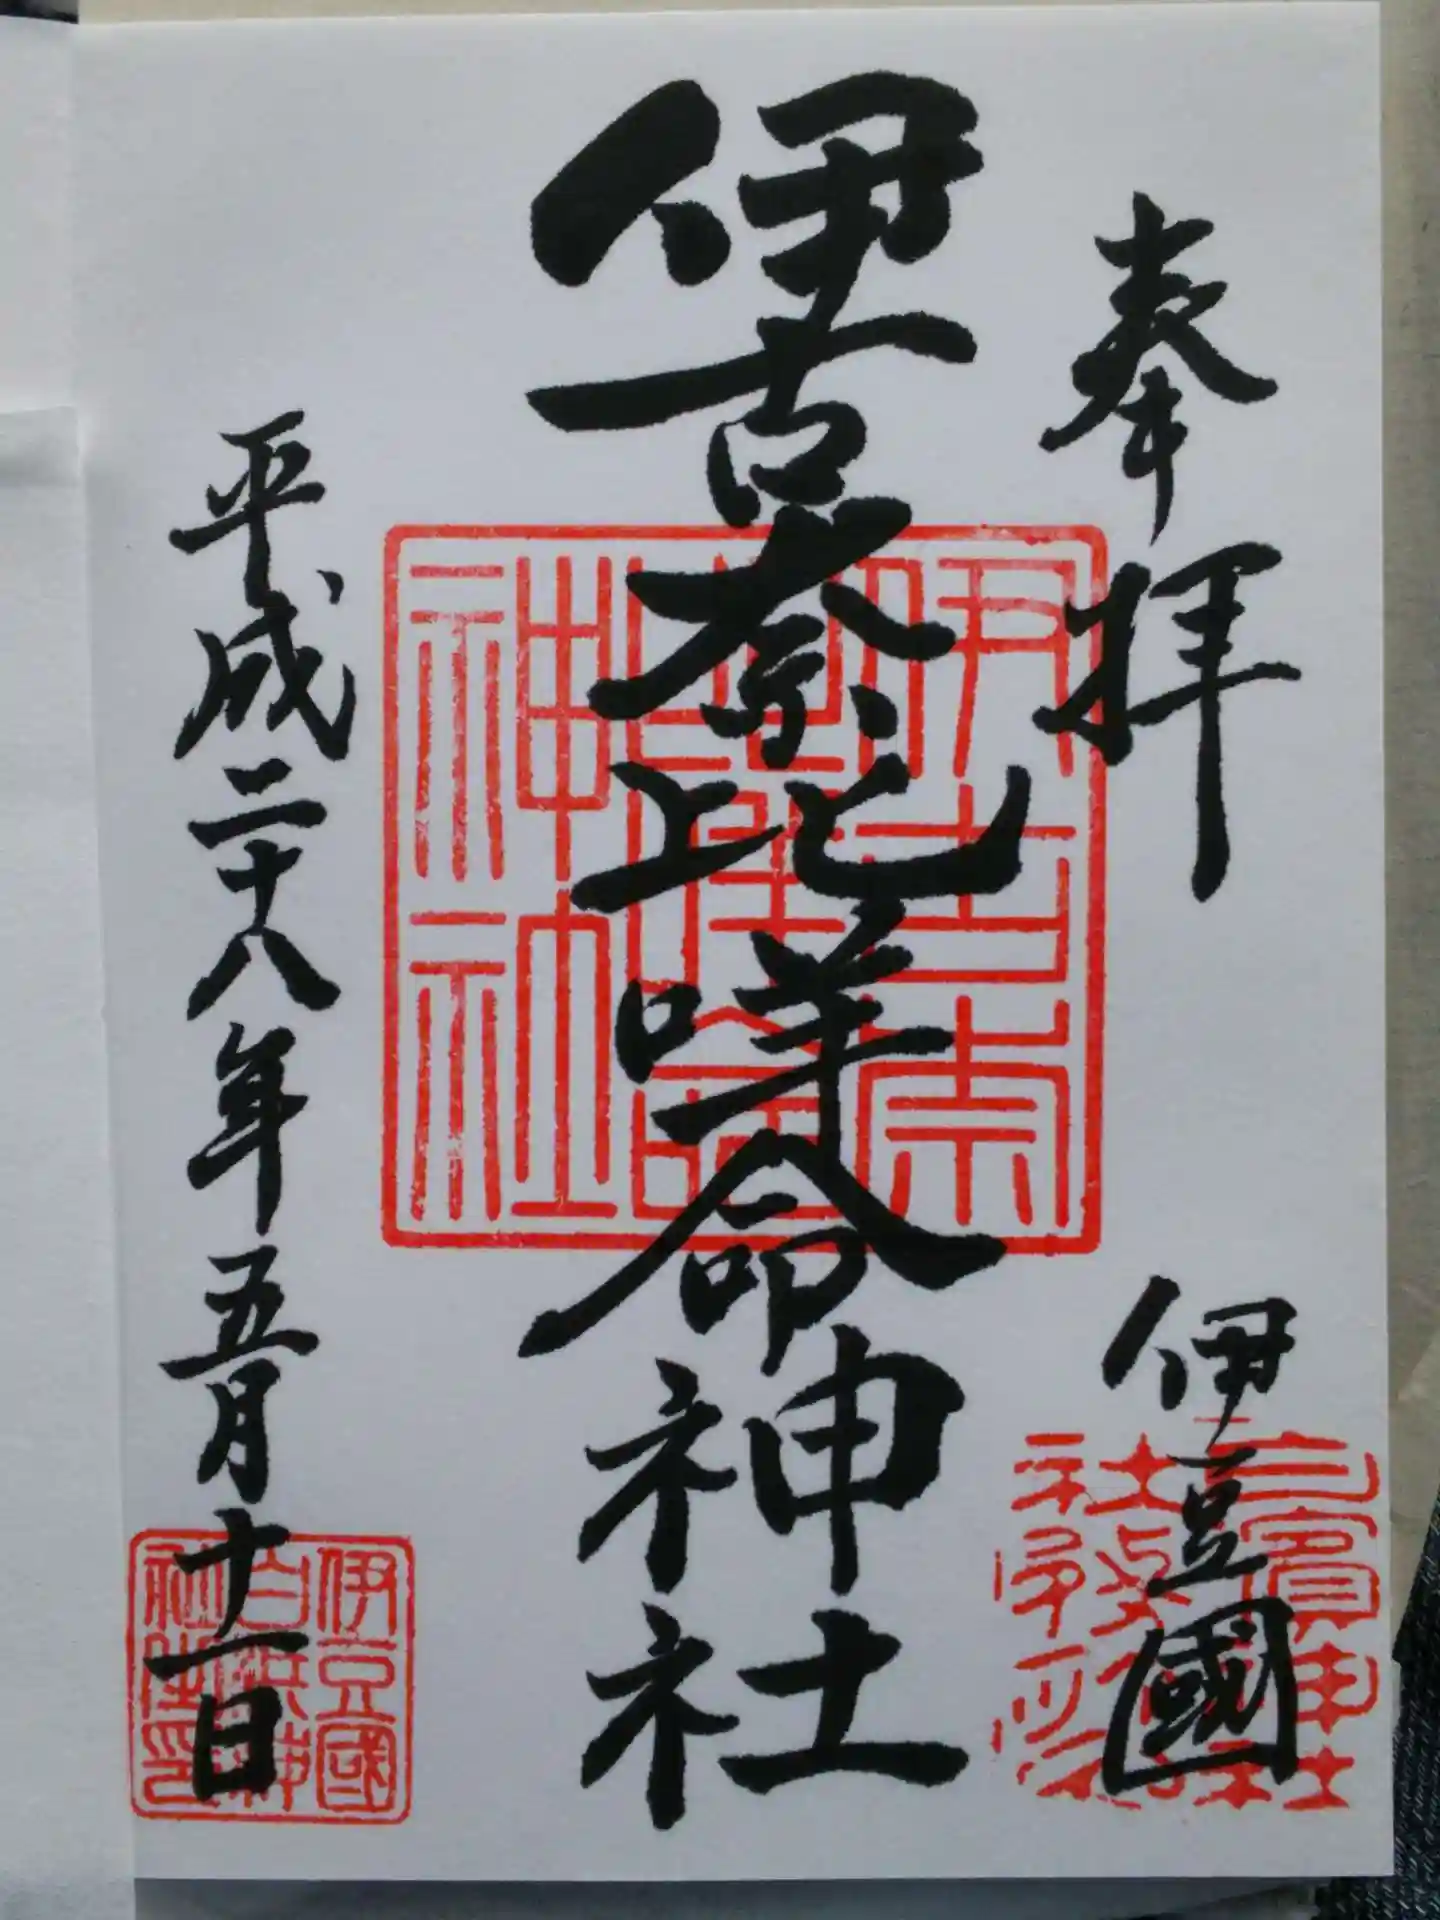 奉拝
伊豆國
伊古奈比咩命神社
平成二十八年五月十一日
伊古奈
比咩命
神社
伊豆國
白浜